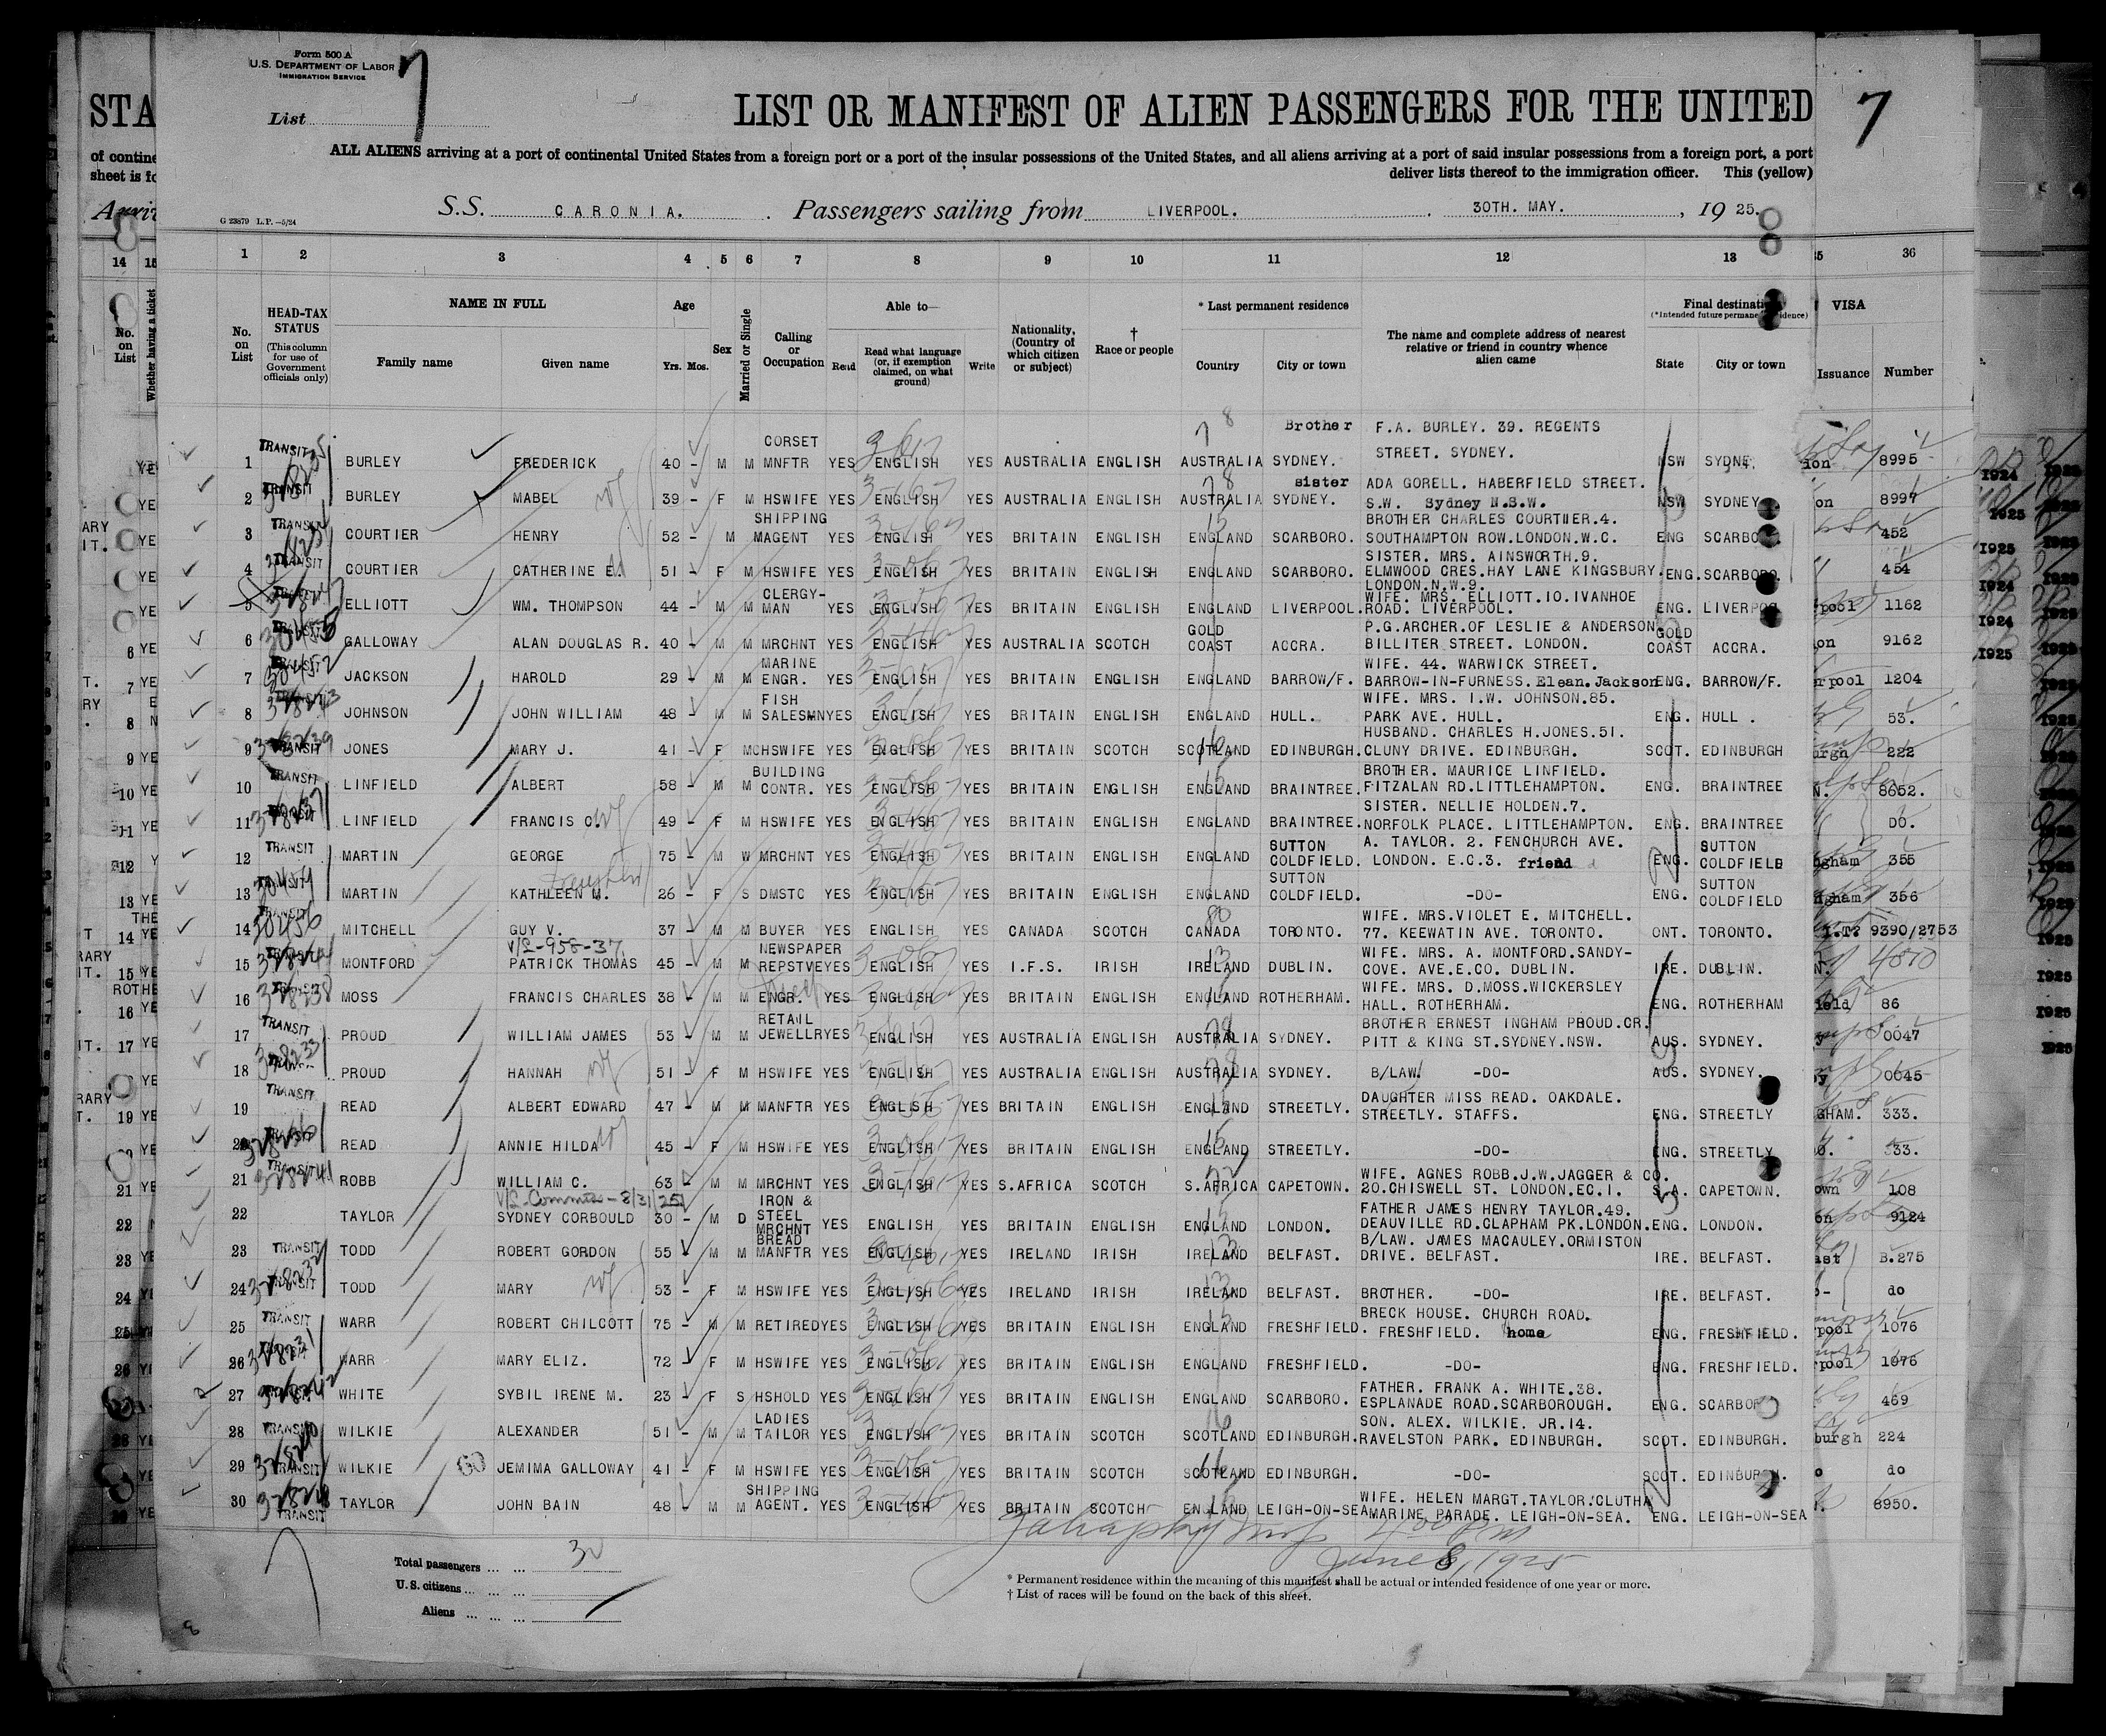 Form 500 A
U.S. DEPARTMENT OF LABOR
IMMIGRATION SERVICE
7
List
LIST OR MANIFEST OF ALIEN PASSENGERS FOR THE UNITED
7
STA
ALL ALIENS arriving at a port of continental United States from a foreign port or a port of the insular possessions of the United States, and all aliens arriving at a port of said insular possessions from a foreign port, a port
deliver lists thereof to the immigration officer. This (yellow)
of contine
sheet is fo
G 23879 L.P.—5/24
S.S. CARONIA. Passengers sailing from LIVERPOOL. 30TH. MAY. , 19 25.
14 15 1 2 3 4 5 6 7 8 9 10 11 12 13 36
No. on List
Whether having a ticket
No. on List
HEAD-TAX STATUS
(This column for use of Government officials only)
NAME IN FULL
Family name Given name
Age
Yrs. Mos.
Sex
Married or Single
Calling or Occupation
Able to—
Read Read what language (or, if exemption claimed, on what ground) Write
Nationality, (Country of which citizen or subject)
† Race or people
* Last permanent residence
Country City or town
The name and complete address of nearest relative or friend in country whence alien came
Final destination
(*Intended future permanent residence)
State City or town
VISA
Issuance Number
1 TRANSIT BURLEY FREDERICK 40 - M M CORSET MNFTR YES ENGLISH YES AUSTRALIA ENGLISH AUSTRALIA SYDNEY. Brother F.A. BURLEY. 39. REGENTS STREET. SYDNEY. NSW SYDNEY. 8995
2 TRANSIT BURLEY MABEL 39 - F M HSWIFE YES ENGLISH YES AUSTRALIA ENGLISH AUSTRALIA SYDNEY. sister ADA GORELL. HABERFIELD STREET. S.W. Sydney N.S.W. NSW SYDNEY 8997
3 TRANSIT COURTIER HENRY 52 - M M SHIPPING AGENT YES ENGLISH YES BRITAIN ENGLISH ENGLAND SCARBORO. BROTHER CHARLES COURTIER.4. SOUTHAMPTON ROW.LONDON.W.C. ENG SCARBO 452
4 TRANSIT COURTIER CATHERINE E. 51 - F M HSWIFE YES ENGLISH YES BRITAIN ENGLISH ENGLAND SCARBORO. SISTER. MRS. AINSWORTH.9. ELMWOOD CRES.HAY LANE KINGSBURY. LONDON.N.W.9. ENG. SCARBORO. 454
5 TRANSIT ELLIOTT WM. THOMPSON 44 - M M CLERGY-MAN YES ENGLISH YES BRITAIN ENGLISH ENGLAND LIVERPOOL. WIFE. MRS. ELLIOTT.10.IVANHOE ROAD. LIVERPOOL. ENG. LIVERPOO 1162
6 TRANSIT GALLOWAY ALAN DOUGLAS R. 40 - M M MRCHNT YES ENGLISH YES AUSTRALIA SCOTCH GOLD COAST ACCRA. P.G.ARCHER.OF LESLIE & ANDERSON. BILLITER STREET. LONDON. GOLD COAST ACCRA. 9162
7 TRANSIT JACKSON HAROLD 29 - M M MARINE ENGR. YES ENGLISH YES BRITAIN ENGLISH ENGLAND BARROW/F. WIFE. 44. WARWICK STREET. BARROW-IN-FURNESS. Elean.Jackson ENG. BARROW/F. 1204
8 TRANSIT JOHNSON JOHN WILLIAM 48 - M M FISH SALESMN YES ENGLISH YES BRITAIN ENGLISH ENGLAND HULL. WIFE. MRS. I.W. JOHNSON.85. PARK AVE. HULL. ENG. HULL . 53.
9 TRANSIT JONES MARY J. 41 - F M HSWIFE YES ENGLISH YES BRITAIN SCOTCH SCOTLAND EDINBURGH. HUSBAND. CHARLES H.JONES.51. CLUNY DRIVE. EDINBURGH. SCOT. EDINBURGH 222
10 TRANSIT LINFIELD ALBERT 58 - M M BUILDING CONTR. YES ENGLISH YES BRITAIN ENGLISH ENGLAND BRAINTREE. BROTHER. MAURICE LINFIELD. FITZALAN RD.LITTLEHAMPTON. ENG. BRAINTREE 8652.
11 TRANSIT LINFIELD FRANCIS C. 49 - F M HSWIFE YES ENGLISH YES BRITAIN ENGLISH ENGLAND BRAINTREE. SISTER. NELLIE HOLDEN.7. NORFOLK PLACE. LITTLEHAMPTON. ENG. BRAINTREE DO.
12 TRANSIT MARTIN GEORGE 75 - M W MRCHNT YES ENGLISH YES BRITAIN ENGLISH ENGLAND SUTTON COLDFIELD. A. TAYLOR. 2. FENCHURCH AVE. LONDON. E.C.3. friend ENG. SUTTON COLDFIELD 355
13 TRANSIT MARTIN KATHLEEN M. 26 - F S DMSTC YES ENGLISH YES BRITAIN ENGLISH ENGLAND SUTTON COLDFIELD. -DO- ENG. SUTTON COLDFIELD 356
14 TRANSIT 30456 MITCHELL GUY V. 37 - M M BUYER YES ENGLISH YES CANADA SCOTCH CANADA TORONTO. WIFE. MRS.VIOLET E. MITCHELL. 77. KEEWATIN AVE. TORONTO. ONT. TORONTO. 9390/2753
15 TRANSIT MONTFORD PATRICK THOMAS 45 - M M NEWSPAPER REPSTVE YES ENGLISH YES I.F.S. IRISH IRELAND DUBLIN. WIFE. MRS. A. MONTFORD.SANDY-COVE. AVE.E.CO. DUBLIN. IRE. DUBLIN. 4870
16 TRANSIT MOSS FRANCIS CHARLES 38 - M M ENGR. YES ENGLISH YES BRITAIN ENGLISH ENGLAND ROTHERHAM. WIFE. MRS. D.MOSS.WICKERSLEY HALL. ROTHERHAM. ENG. ROTHERHAM 86
17 TRANSIT PROUD WILLIAM JAMES 53 - M M RETAIL JEWELLR YES ENGLISH YES AUSTRALIA ENGLISH AUSTRALIA SYDNEY. BROTHER ERNEST INGHAM PROUD.CR. PITT & KING ST.SYDNEY.NSW. AUS. SYDNEY. 0047
18 PROUD HANNAH 51 - F M HSWIFE YES ENGLISH YES AUSTRALIA ENGLISH AUSTRALIA SYDNEY. B/LAW. -DO- AUS. SYDNEY. 0045
19 TRANSIT READ ALBERT EDWARD 47 - M M MANFTR YES ENGLISH YES BRITAIN ENGLISH ENGLAND STREETLY. DAUGHTER MISS READ. OAKDALE. STREETLY. STAFFS. ENG. STREETLY GHAM. 333.
20 TRANSIT READ ANNIE HILDA 45 - F M HSWIFE YES ENGLISH YES BRITAIN ENGLISH ENGLAND STREETLY. -DO- ENG. STREETLY 333.
21 TRANSIT ROBB WILLIAM C. 63 - M M MRCHNT YES ENGLISH YES S.AFRICA SCOTCH S.AFRICA CAPETOWN. WIFE. AGNES ROBB.J.W.JAGGER & CO. 20.CHISWELL ST. LONDON.EC.1. S.A. CAPETOWN. 108
22 TAYLOR SYDNEY CORBOULD 30 - M D IRON & STEEL MRCHNT YES ENGLISH YES BRITAIN ENGLISH ENGLAND LONDON. FATHER JAMES HENRY TAYLOR.49. DEAUVILLE RD.CLAPHAM PK.LONDON. ENG. LONDON. 9124
23 TRANSIT TODD ROBERT GORDON 55 - M M BREAD MANFTR YES ENGLISH YES IRELAND IRISH IRELAND BELFAST. B/LAW. JAMES MACAULEY.ORMISTON DRIVE. BELFAST. IRE. BELFAST. B.275
24 TRANSIT TODD MARY 53 - F M HSWIFE YES ENGLISH YES IRELAND IRISH IRELAND BELFAST. BROTHER. -DO- IRE. BELFAST. do
25 TRANSIT WARR ROBERT CHILCOTT 75 - M M RETIRED YES ENGLISH YES BRITAIN ENGLISH ENGLAND FRESHFIELD. BRECK HOUSE. CHURCH ROAD. FRESHFIELD. home ENG. FRESHFIELD. 1076
26 WARR MARY ELIZ. 72 - F M HSWIFE YES ENGLISH YES BRITAIN ENGLISH ENGLAND FRESHFIELD. -DO- ENG. FRESHFIELD. 1076
27 WHITE SYBIL IRENE M. 23 - F S HSHOLD YES ENGLISH YES BRITAIN ENGLISH ENGLAND SCARBORO. FATHER. FRANK A. WHITE.38. ESPLANADE ROAD.SCARBOROUGH. ENG. SCARBOR 469
28 TRANSIT WILKIE ALEXANDER 51 - M M LADIES TAILOR YES ENGLISH YES BRITAIN SCOTCH SCOTLAND EDINBURGH. SON. ALEX. WILKIE. JR.14. RAVELSTON PARK. EDINBURGH. SCOT. EDINBURGH. 224
29 TRANSIT WILKIE JEMIMA GALLOWAY 41 - F M HSWIFE YES ENGLISH YES BRITAIN SCOTCH SCOTLAND EDINBURGH. -DO- SCOT. EDINBURGH. do
30 TRANSIT TAYLOR JOHN BAIN 48 - M M SHIPPING AGENT. YES ENGLISH YES BRITAIN SCOTCH ENGLAND LEIGH-ON-SEA WIFE. HELEN MARGT.TAYLOR.'CLUTHA MARINE PARADE. LEIGH-ON-SEA. ENG. LEIGH-ON-SEA 8950.
June 8, 1925
Total passengers ... ... 30
U.S. citizens ... ... ...
Aliens ... ... ...
* Permanent residence within the meaning of this manifest shall be actual or intended residence of one year or more.
† List of races will be found on the back of this sheet.